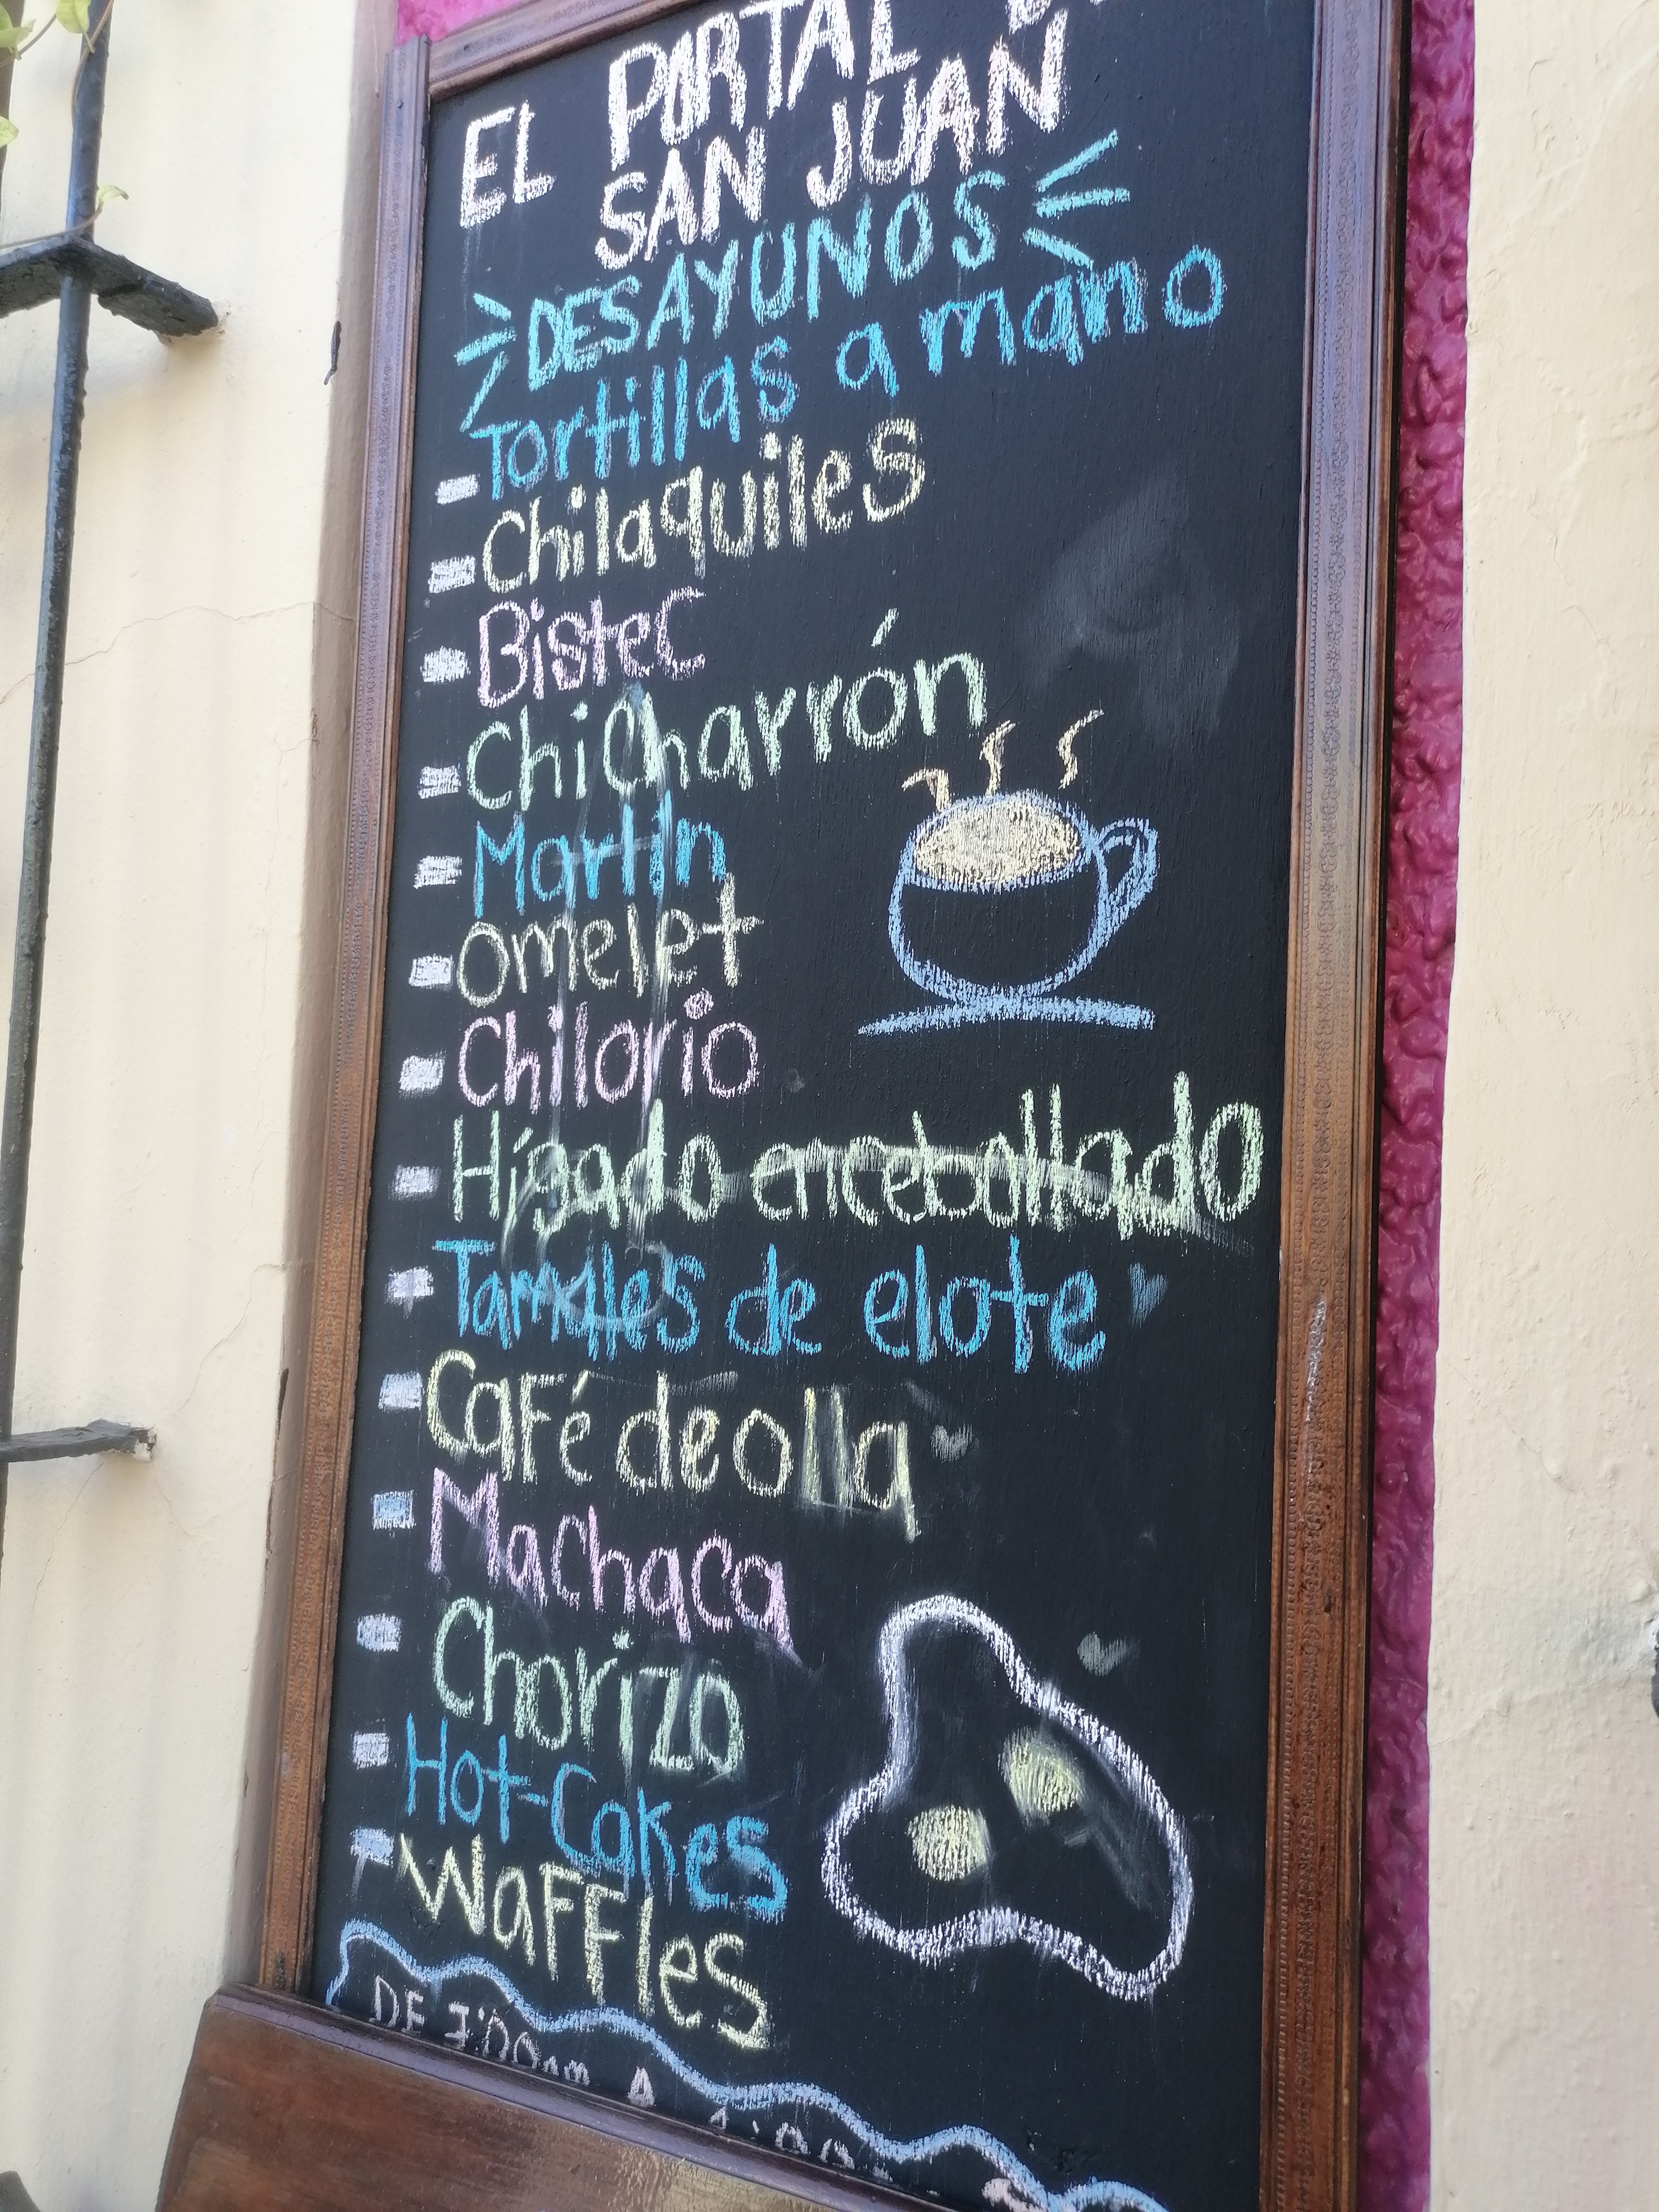 EL PORTAL
SAN JUAN
DESAYUNOS
Tortillas a mano
Chilaquiles
Bistec
Chicharrón
Martin
Omelet
Chilorio
Hígado encebollado
Tamales de elote
Café de olla
Machaca
Chorizo
Hot-Cakes
Waffles
DE 7:00am A